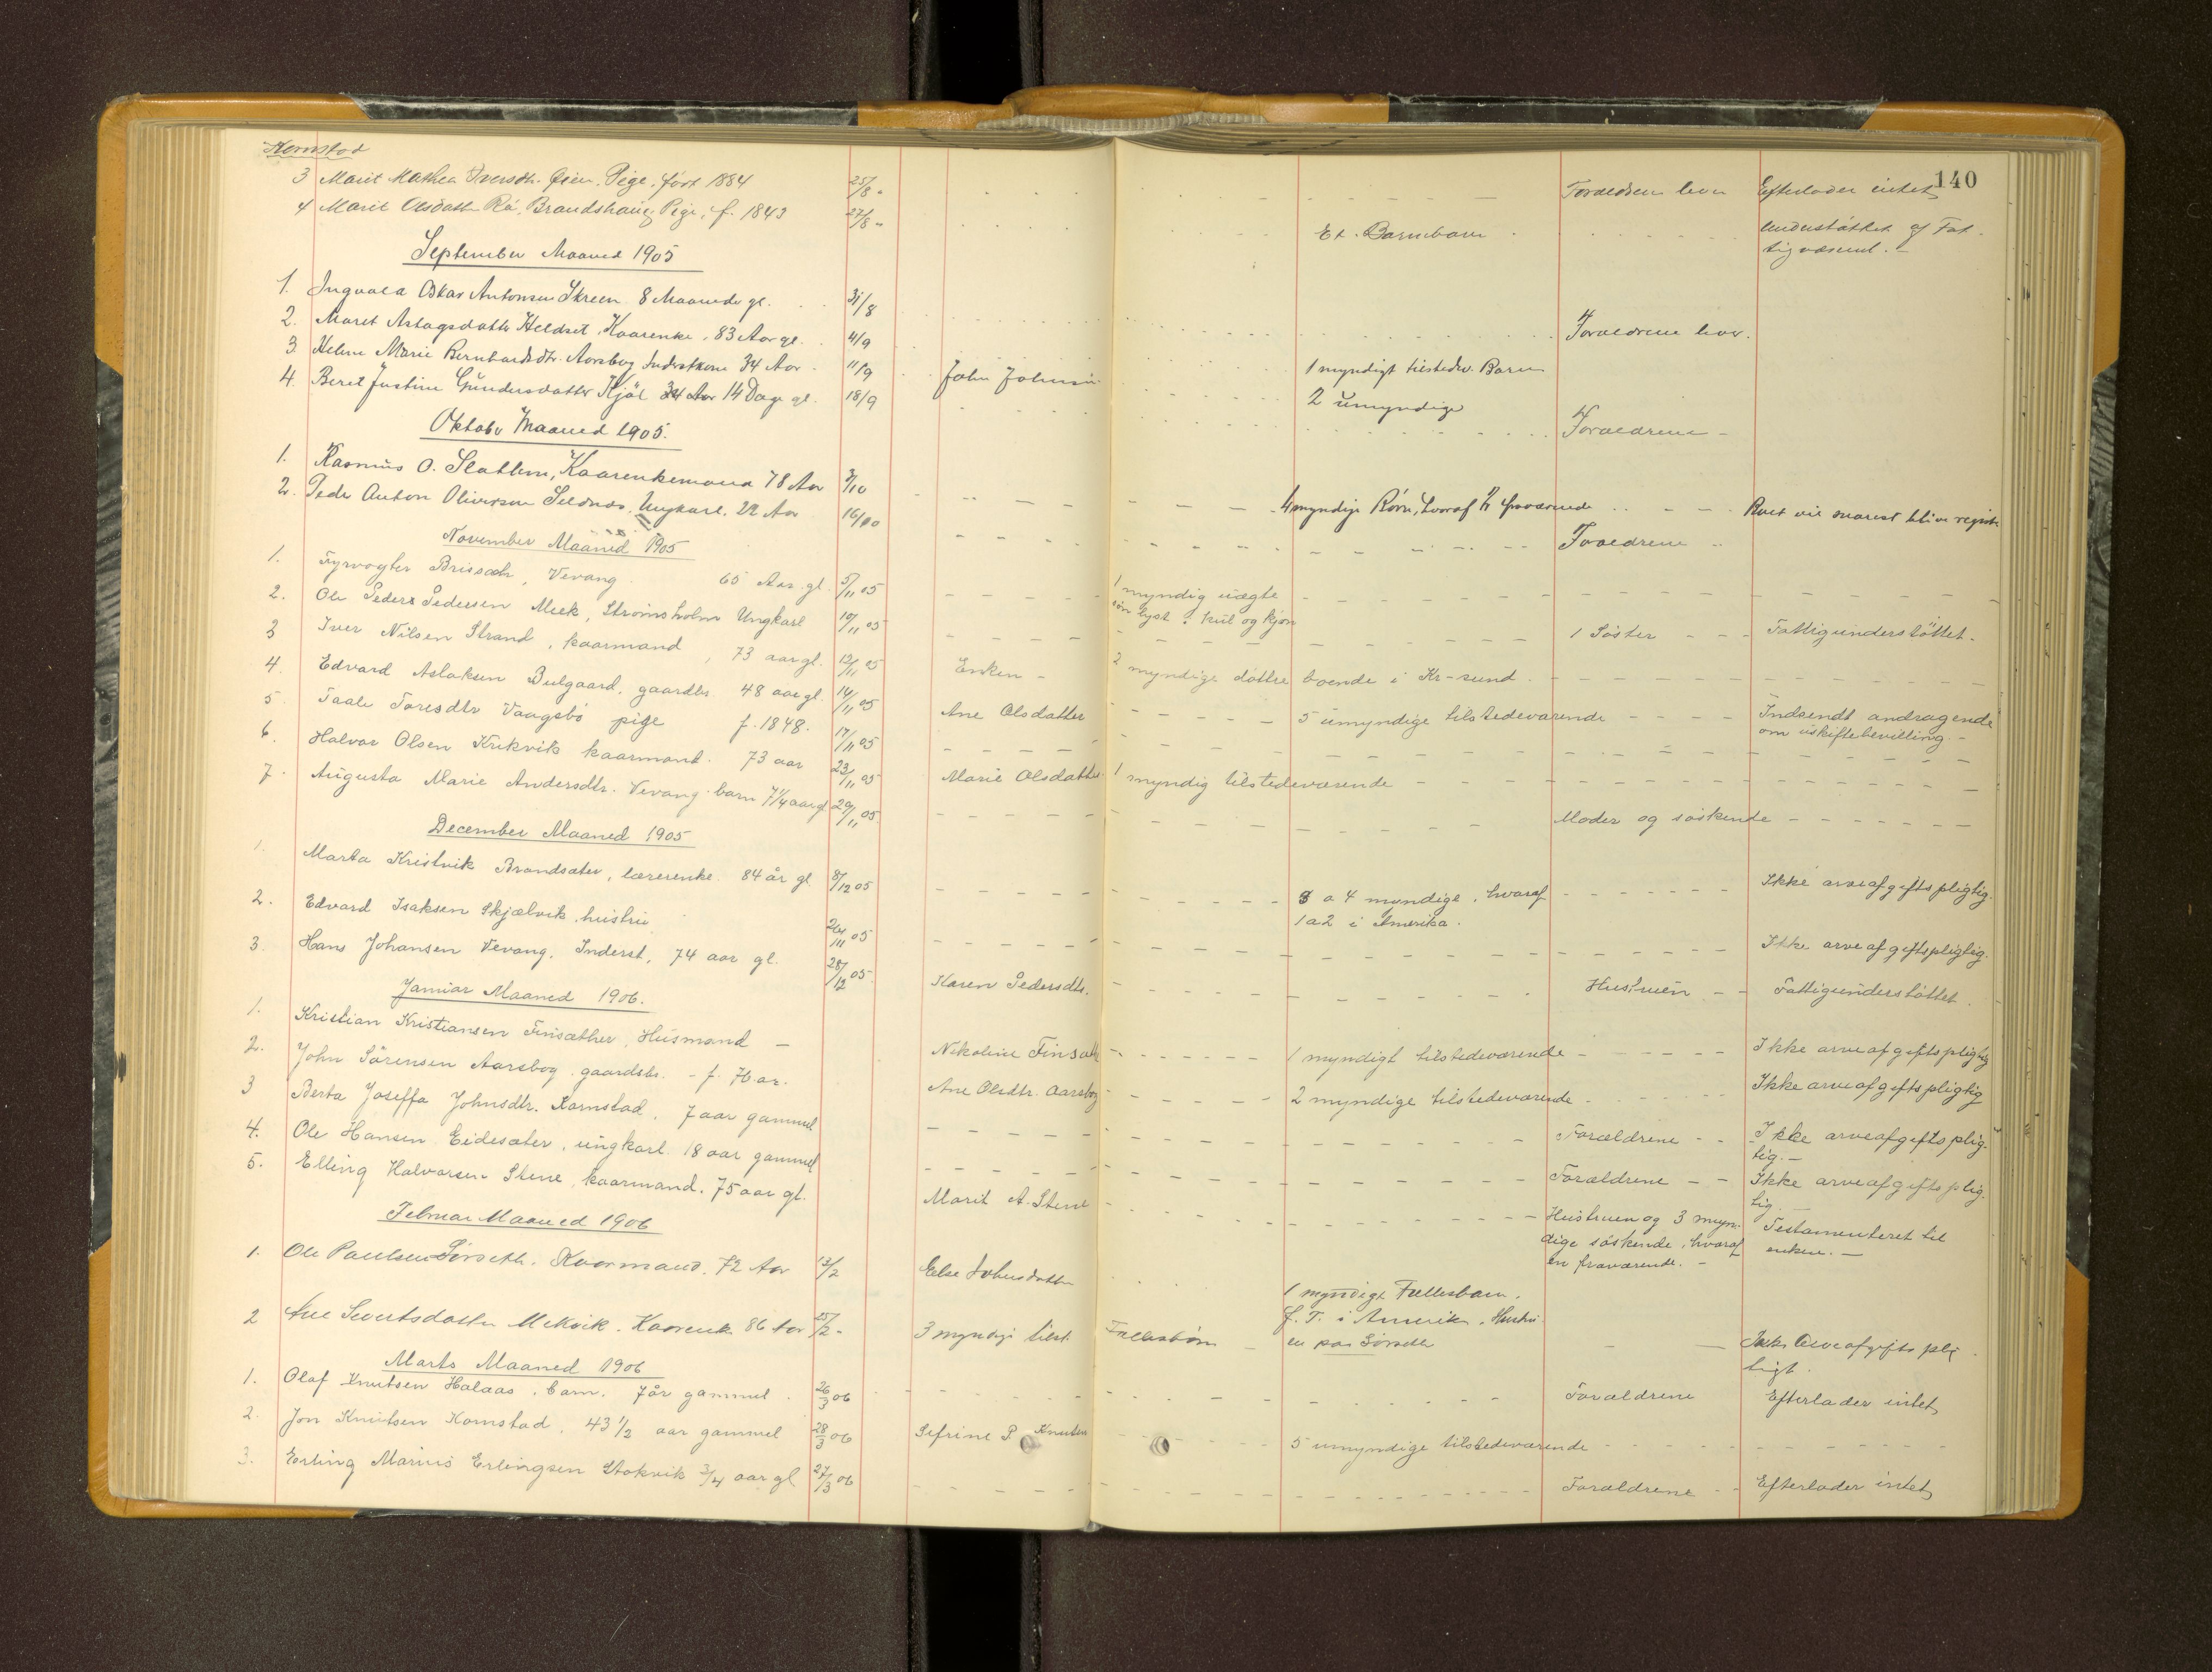 140
Kornstad
3 Marit Mathea Iversdtr. Øien, Pige, født 1884 25/8 - Forældrene lever Efterlader intet
4 Marit Olsdatter Rø, Brandshaug, Pige, f. 1843 27/8 - Et Barnebarn Understøttet af Fat-
tigvæsenet. -
September Maaned 1905
1. Oskar Antonsen Skreen 8 Maaneder gl. 31/8 Forældrene lever.
2. Maret Aslagsdatter Heldset, Kaarenke, 83 Aar gl. 4/9 1 myndigt tilstedev. Barn
3. Marie Bernhardsdtr. Aarsbog Inderstkone 34 Aar 11/9 John Johnsen 2 umyndige
4. Beret Justine Gundersdatter Kjøl 14 Dage gl. 18/9 Forældrene -
Oktober Maaned 1905.
1. Rasmus O. Slatlem, Kaarenkemand 78 Aar 3/10 4 myndige Børn, hvoraf fraværende Boet vil snarest blive
2. Peder Anton Oliversen Ungkarl. 22 Aar 16/10 Forældrene
November Maaned 1905
1. Fyrvogter Brissach, Vevang. 65 Aar gl. 5/11 05 1 myndig uægte
søn
2. Ole Peders Pedersen Meek, Strømsholm Ungkarl 10/11 05 1 Søster - - Fattigunderstøttet -
3 Iver Nilsen Strand, kaarmand, 73 aar gl. 12/11 05 Enken - 2 myndige døttre boende i Kr-sund
4. Edvard Aslaksen Bulgaard, gaardbr. 48 aar gl. 14/11 05 Ane Olsdatter 5 umyndige tilstedeværende Indsendt andragende
om uskiftebevilling -
5 Taale Toresdtr Vaagsbø pige f. 1848. 17/11 05
6. Halvor Olsen Krikvik kaarmand. 73 aar 23/11 05 Marie Olsdatter 1 myndig tilstedeværende
7. Augusta Marie Andersdtr. Vevang barn 7 1/4 aar gl 29/11 05. Moder og søskende
December Maaned 1905
1. Marta Kristvik Brandsæter, lærerenke 84 år gl 8/12 05 3 a 4 myndige, hvoraf
1 a 2 i Amerika. Ikke arveafgiftspligtig.
2. Edvard Isaksen Skjælvik hustru 24/11 05 Ikke arveafgiftspligtig.
3. Hans Johansen Vevang, Inderst, 74 aar gl. 28/12 05 Karen Pedersdtr. Hustruen - - Fattigunderstøttet.
Januar Maaned 1906.
1. Kristian Kristiansen Finsæther, Husmand - Nikoline Finsæth 1 myndigt tilstedeværende Ikke arveafgiftspligtig
2. John Sørensen Aarsbog gaardsbr. - f. 76 ar. Ane Olsdtr. Aarsbog 2 myndige tilstedeværende Ikke arveafgiftspligtig
3 Berta Joseffa Johnsdtr. Kornstad, 7 aar gammel Forældrene - - Ikke arveafgiftsplig-
tig. -
4. Ole Hansen Eidesæter, ungkarl 18 aar gammel Forældrene - - Ikke arveafgiftsplig-
tig
5. Elling Halvorsen Stene, kaarmand. 75 aar gl. Marit A. Stene Hustruen og 3 myn-
dige søskende, hvoraf
en fraværende. - Testamenteret til
enken. -
Februar Maaned 1906
1. Ole Paulsen Sørseth. Kaarmand. 72 Aar 12/2 Else Johnsdatter 1 myndigt Fællesbarn.
f. T. i Amerika.
en paa Sørseth
2 Ane Sivertsdatter Mekvik. Kaarenke 86 Aar 25/2 - 3 myndige tilst. Fællesbørn Ikke Arveafgiftspli-
tigt.
Marts Maaned 1906
1. Olaf Knutsen Halaas, barn. 7 år gammel. 26/3 06 Forældrene Efterlader intet
2. Jon Knutsen Kornstad, 43 1/2 aar gammel 28/3 06 Sefrine P Knutsen 5 umyndige tilstedeværende
3. Erling Marius Erlingsen Stokvik 3/4 aar gl 27/3 06 Forældrene - - Efterlader intet